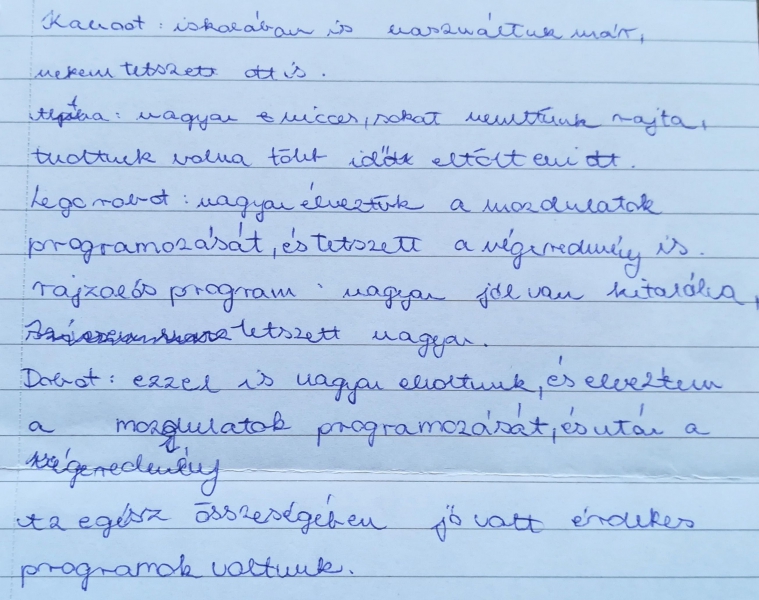 Kahoot: iskolában is használtuk már,
nekem tetszett ott is.
Alpha: nagyon vicces, sokat nevettünk rajta,
tudtunk volna több időt eltölteni ott.
Lego robot: nagyon élveztük a mozdulatok
programozását, és tetszett a végeredmény is.
rajzolós program: nagyon jól van kitalálva,
tetszett nagyon.
Dobot: ezzel is nagyon elvoltunk, és elveztem
a mozdulatok programozását, és után a
végeredmény
Az egész összeségében jó volt érdekes
programok voltunk.